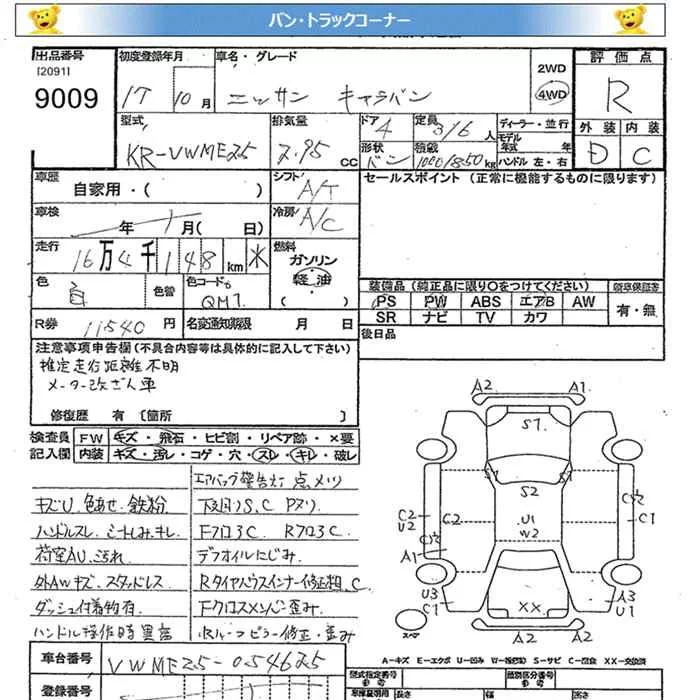 バン・トラックコーナー
出品番号
[2091]
9009
初度登録年月
17 10月
車名・グレード
ニッサン キャラバン
2WD
4WD
評価点
R
外装 内装
D C
型式
KR-VWME25
排気量
2.95 CC
ドア
4
定員
3/6 人
形状
バン
積載
1000/850 kg
ディーラー・並行
モデル
年式 年
ハンドル 左・右
車歴
自家用・( )
シフト
A/T
セールスポイント (正常に機能するものに限ります)
車検
年 月( 日)
冷房
A/C
走行
16万4千148km
燃料
ガソリン
軽油
( )
色
白
色替
色コード
QM1
装備品 (純正品に限り○をつけてください)
PS PW ABS エアB AW
SR ナビ TV カワ
新車保証書
有・無
R券 11540 円
名変通知期限 月 日
後日品
注意事項申告欄 (不具合内容等は具体的に記入して下さい)
推定走行距離不明
メーター改ざん車
修復歴 有 〔箇所 〕
検査員
記入欄
FW キズ・飛石・ヒビ割・リペア跡・×要
内装 キズ・汚レ・コゲ・穴・スレ・キレ・破レ
エアバッグ警告灯 点メツ
キズU 色あせ・鉄粉
下廻りS、C Pヌリ
ハンドルスレ、シートしみ、キレ
Fフロ3C Rフロ3C
荷室AU、汚れ
デフオイルにじみ
外AWキズ スタッドレス
Rタイヤハウスインナー修正相、C
ダッシュ付着物有
Fクロスメンバー歪み
ハンドル操作時異音
Rルーフピラー修正・歪み
A2 A1
S1
S1 S1
S2
C2
U2
C2
U1
W2
C1
A1
U3
C1
XX
A3
U1
A2 A2
スペア
車台番号 VWME25-054625
A-キズ E-エクボ U-凹み W-補修跡 S-サビ C-腐食 XX-交換済
登録番号
型式指定番号
類別区分番号
長さ 幅 高さ